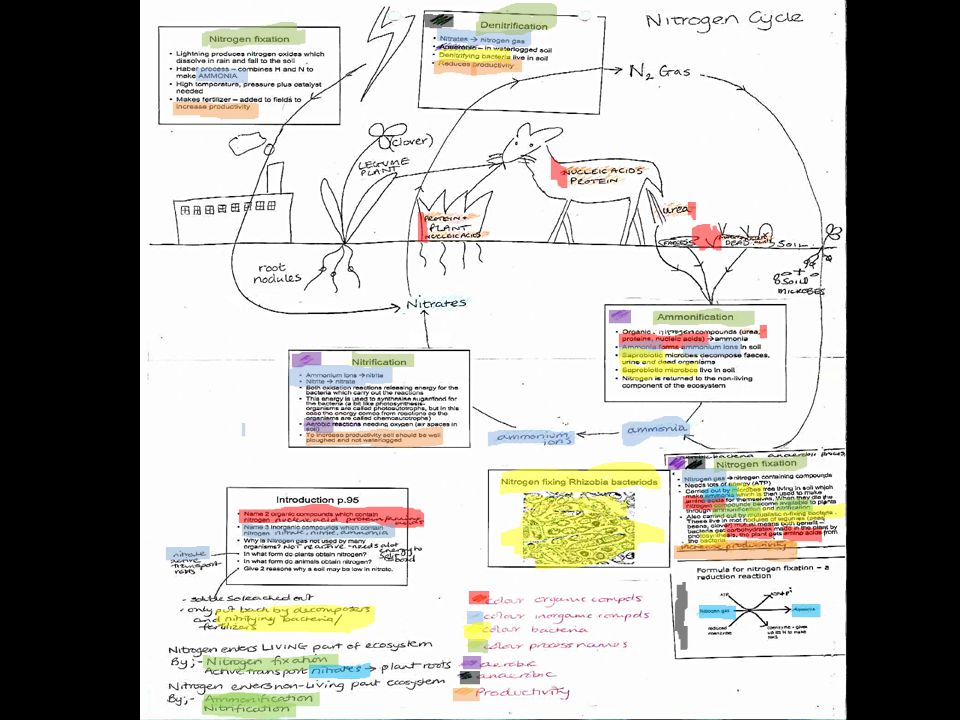 Nitrogen Cycle
Nitrogen fixation
• Lightning produces nitrogen oxides which
dissolve in rain and fall to the soil
• Haber process – combines H and N to
make AMMONIA
• High temperature, pressure plus catalyst
needed
• Makes fertilizer – added to fields to
increase productivity
Denitrification
• Nitrates → nitrogen gas
• Anaerobic – in waterlogged soil
• Denitrifying bacteria live in soil
• Reduces productivity
N2 Gas
(clover)
LEGUME
PLANT
NUCLEIC ACIDS
PROTEIN
PROTEIN +
PLANT
NUCLEIC ACIDS
urea
FAECES
DEAD
SOIL
root
nodules
SOIL
MICROBES
Nitrates
Ammonification
• Organic nitrogen compounds (urea,
proteins, nucleic acids) → ammonia
• Ammonia forms ammonium ions in soil
• Saprobiotic microbes decompose faeces,
urine and dead organisms
• Saprobiotic microbes live in soil
• Nitrogen is returned to the non-living
component of the ecosystem
Nitrification
• Ammonium ions → nitrite
• Nitrite → nitrate
• Both oxidation reactions releasing energy for the
bacteria which carry out the reactions
• This energy is used to synthesise sugar/food for
the bacteria (a bit like photosynthesis-
organisms are called photoautotrophs, but in this
case the energy comes from reactions so the
organisms are called chemoautotrophs)
• Aerobic reactions needing oxygen (air spaces in
soil)
• To increase productivity soil should be well
ploughed and not waterlogged
ammonium
ions
ammonia
bacteria anaerobic process
Nitrogen fixation
• Nitrogen gas → nitrogen containing compounds
• Needs lots of energy (ATP)
• Carried out by microbes free living in soil which
make ammonia which is then used to make
amino acids for themselves. When they die the
nitrogen compounds become available to plants
through ammonification and nitrification
• Also carried out by mutualistic nitrifying bacteria.
These live in root nodules of legumes (peas
beans, clover) mutual means both benefit –
bacteria get carbohydrates made in the plant by
photosynthesis, the plant gets amino acids from
the bacteria
increase productivity
Nitrogen fixing Rhizobia bacteriods
Introduction p.95
• Name 2 organic compounds which contain
nitrogen nucleic acid protein/amino acids
• Name 3 inorganic compounds which contain
nitrogen nitrate, nitrite, ammonia
• Why is Nitrogen gas not used by many
organisms? Not reactive - needs a lot energy to split bond
• In what form do plants obtain nitrogen?
• In what form do animals obtain nitrogen?
• Give 2 reasons why a soil may be low in nitrate.
nitrate
active
transport
roots
Formula for nitrogen fixation – a
reduction reaction
ATP
ADP+Pi
Nitrogen gas
Ammonia
reduced
coenzyme
- soluble so leached out
- only put back by decomposers
and nitrifying bacteria/
fertilizers
Nitrogen enters LIVING part of ecosystem
By;- Nitrogen fixation
Active transport nitrates → plant roots
Nitrogen enters non-Living part ecosystem
By;- Ammonification
Nitrification
colour organic compds
colour inorganic compds
colour bacteria
colour process names
aerobic
anaerobic
Productivity